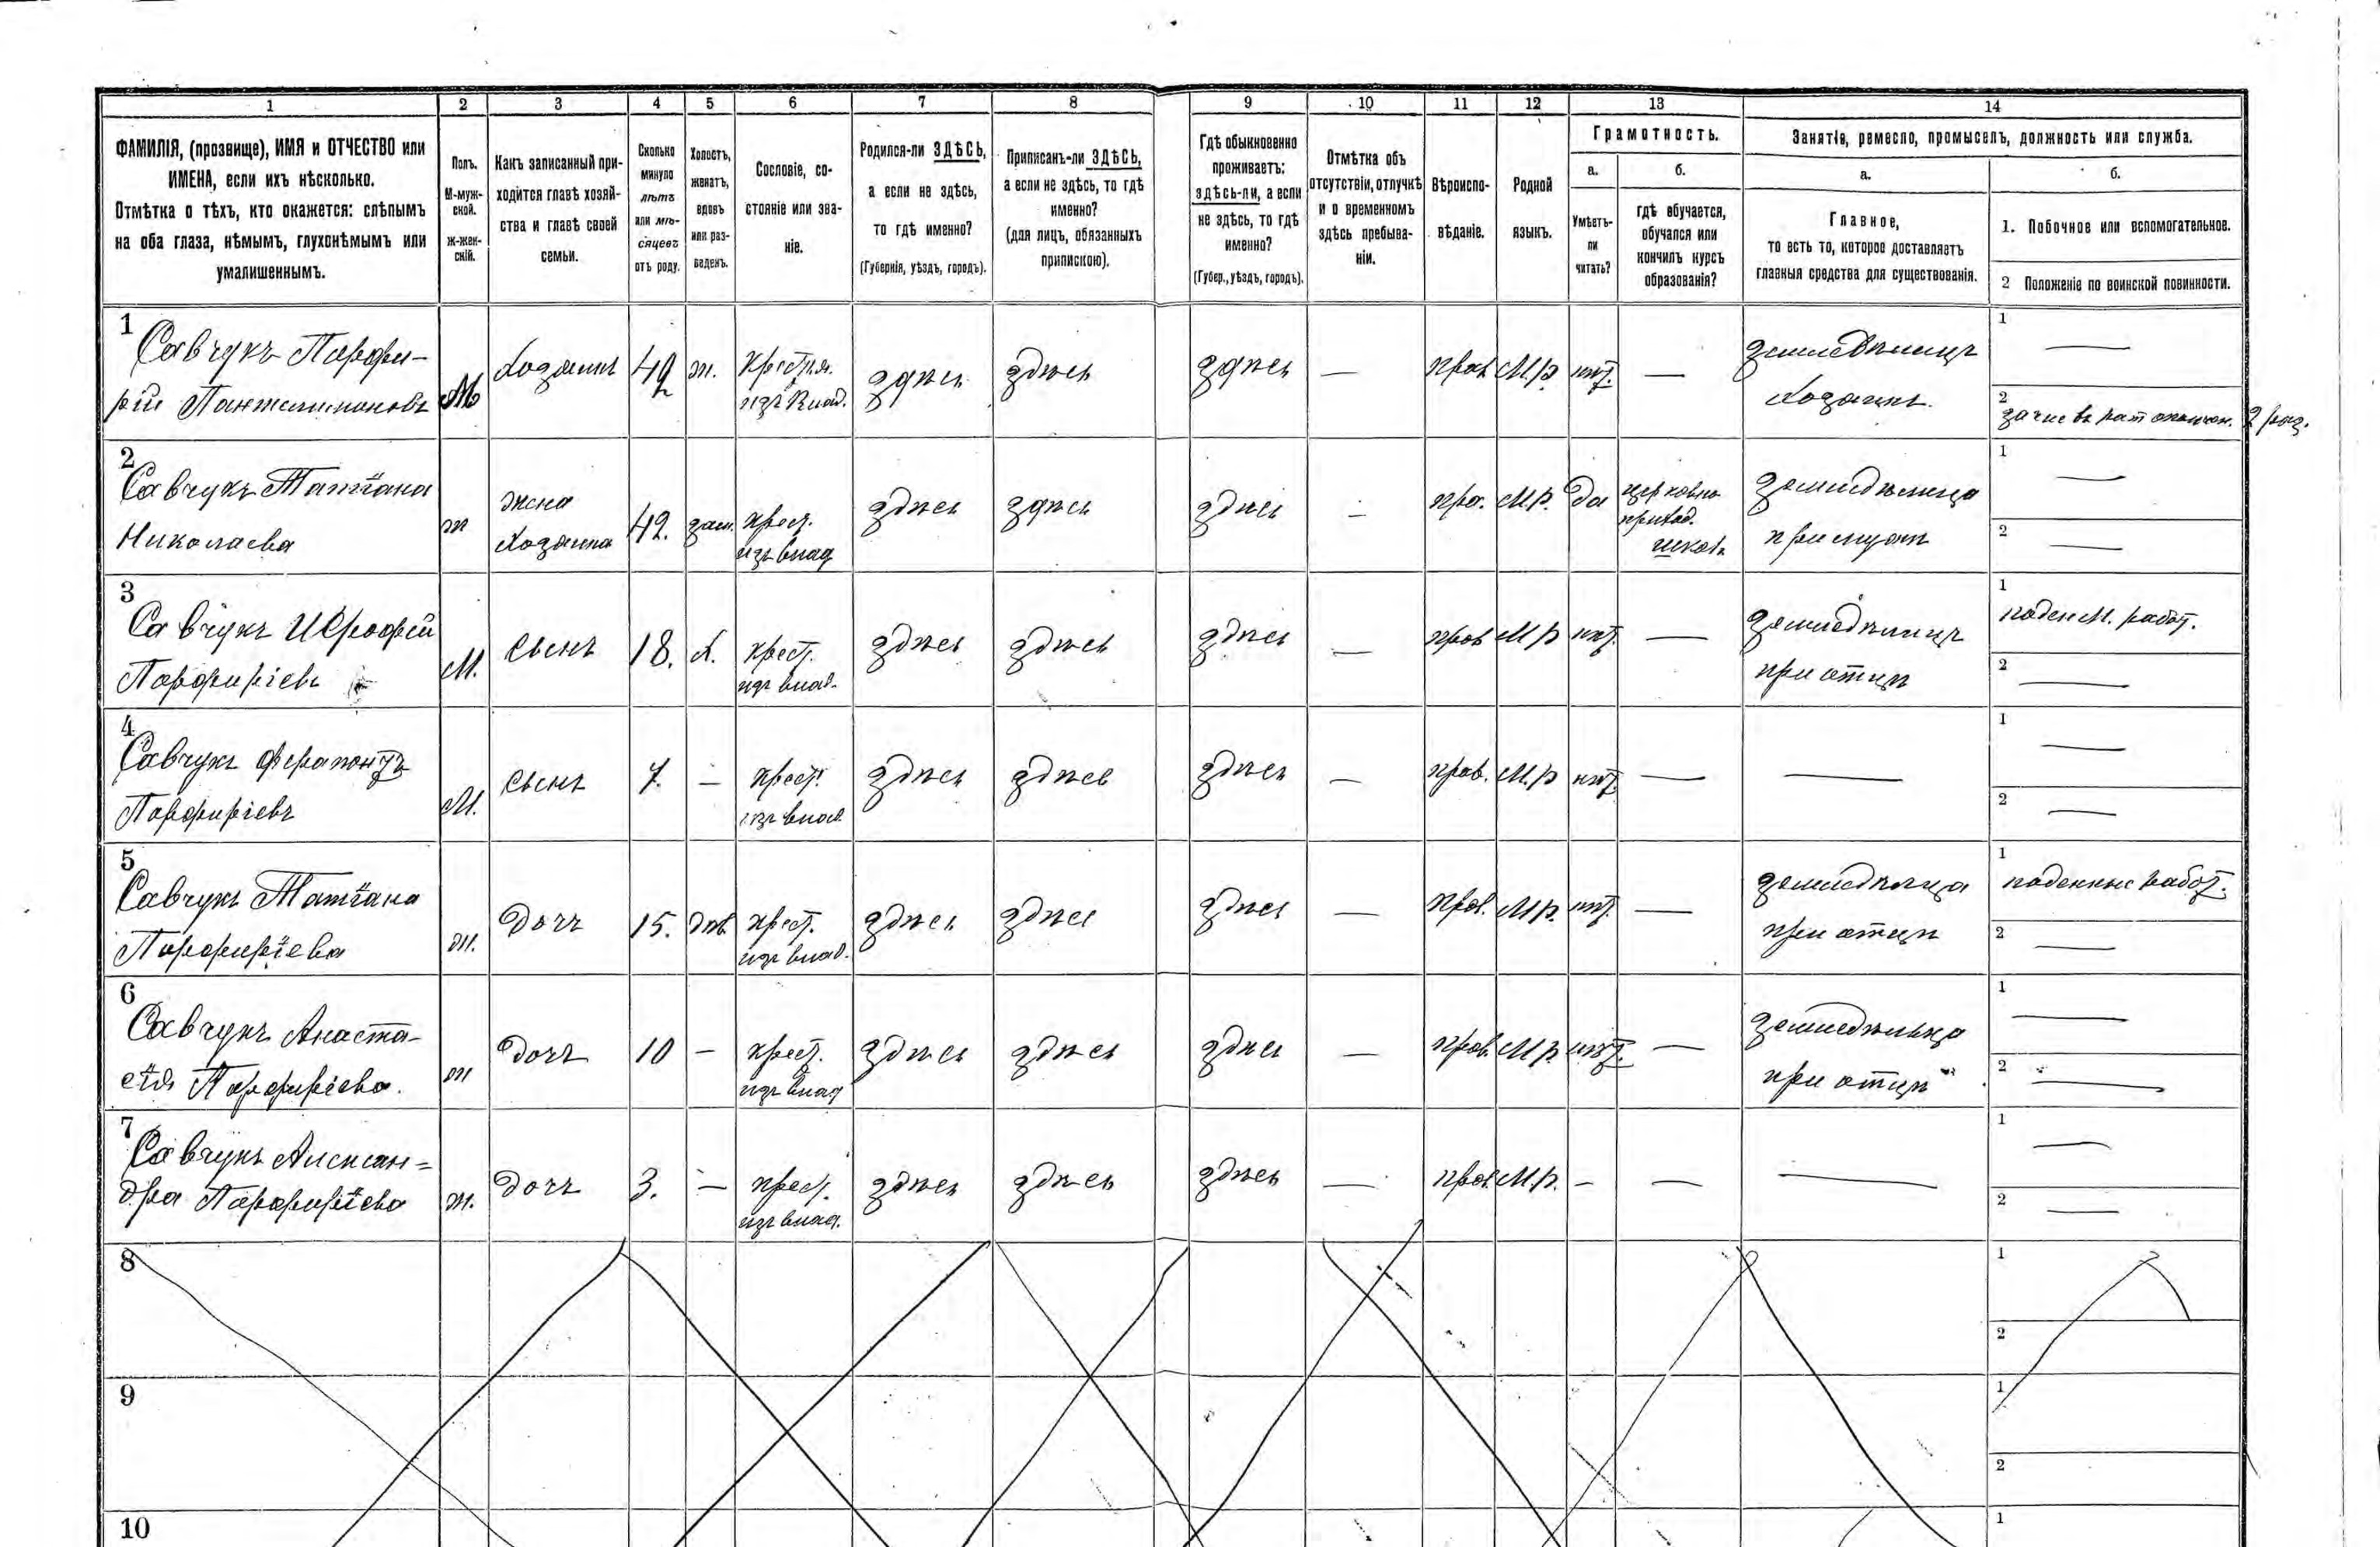 1 2 3 4 5 6 7 8 9 10 11 12 13 14
ФАМИЛІЯ, (прозвище), ИМЯ и ОТЧЕСТВО или
ИМЕНА, если ихъ нѣсколько.
Отмѣтка о тѣхъ, кто окажется: слѣпымъ
на оба глаза, нѣмымъ, глухонѣмымъ или
умалишеннымъ.
Полъ.
М-муж-
ской.
ж-жен-
скій.
Какъ записанный при-
ходится главѣ хозяй-
ства и главѣ своей
семьи.
Сколько
минуло
лѣтъ
или мѣ-
сяцевъ
отъ роду.
Холостъ,
женатъ,
вдовъ
или раз-
веденъ.
Сословіе, со-
стояніе или зва-
ніе.
Родился-ли ЗДѢСЬ,
а если не здѣсь,
то гдѣ именно?
(Губернія, уѣздъ, городъ).
Приписанъ-ли ЗДѢСЬ,
а если не здѣсь, то гдѣ
именно?
(для лицъ, обязанныхъ
припискою).
Гдѣ обыкновенно
проживаетъ:
здѣсь-ли, а если
не здѣсь, то гдѣ
именно?
(Губер., уѣздъ, городъ).
Отмѣтка объ
отсутствіи, отлучкѣ
и о временномъ
здѣсь пребыва-
ніи.
Вѣроиспо-
вѣданіе.
Родной
языкъ.
Грамотность.
а.
Умѣетъ-
ли
читать?
б.
гдѣ обучается,
обучался или
кончилъ курсъ
образованія?
Занятіе, ремесло, промыселъ, должность или служба.
а.
Главное,
то есть то, которое доставляетъ
главныя средства для существованія.
б.
1. Побочное или вспомогательное.
2 Положеніе по воинской повинности.
1
Савчукъ Порфи-
рій Пантелимоновъ
М
Хозяинъ
42
ж.
Крестья.
изъ Влад.
здѣсь
здѣсь
здѣсь
—
прав
М.р.
нѣт.
—
земледѣлецъ
Хозяинъ.
1 —
2
2 раз.
2
Савчукъ Татіана
Николаева
ж
жена
Хозяина
42.
зам.
крест.
изъ влад
здѣсь
здѣсь
здѣсь
—
пра.
М.р.
Да
церковно
приход.
школа
земледѣлица
при мужѣ
1 —
2 —
3
Савчукъ Ιерофей
Порфиріевъ
М.
Сынъ
18.
х.
крест.
изъ влад.
здѣсь
здѣсь
здѣсь
—
прав
М р
нѣт.
—
земледѣлецъ
при отцѣ
1
поден М. работ.
2 —
4
Савчукъ Ферапонтъ
Порфиріевъ
М.
Сынъ
7.
—
крест.
изъ влад.
здѣсь
здѣсь
здѣсь
—
прав.
М.р
нѣт.
—
—
1 —
2 —
5
Савчукъ Татіана
Порфиріева
ж.
Дочъ
15.
дѣв.
крест.
изъ влад.
здѣсь
здѣсь
здѣсь
—
прав.
М р.
нѣт.
—
земледѣлица
при отцѣ
1
поденныя работ.
2 —
6
Савчукъ Анаста-
сія Порфиріева.
ж
Дочъ
10
—
крест.
изъ влад
здѣсь
здѣсь
здѣсь
—
прав.
М р.
нѣт.
—
земледѣлица
при отцѣ
1 —
2 —
7
Савчукъ Алексан=
дра Порфиріева
ж.
Дочъ
3.
—
крест.
изъ влад.
здѣсь
здѣсь
здѣсь
—
прав.
М.р.
—
—
—
1 —
2 —
8
1
2
9
1
2
10
1